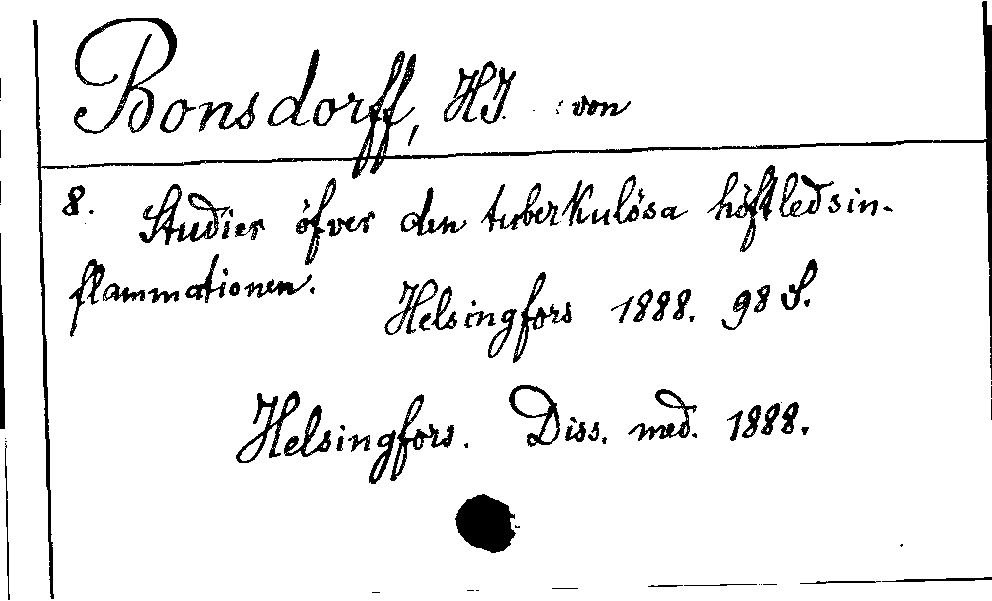 Bonsdorff, HJ. von
8. Studier öfver den tuberkulösa höftledsin-
flammationen.
Helsingfors 1888. 98 S.
Helsingfors. Diss. med. 1888.